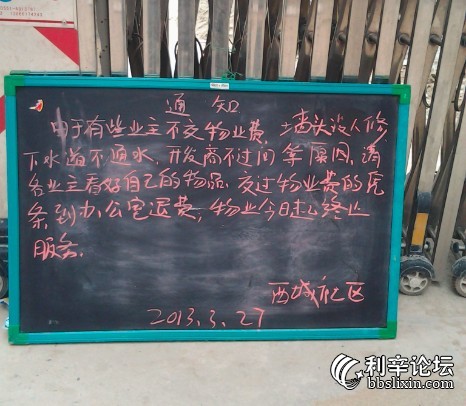 通知
由于有些业主不交物业费，墙头没人修，
下水道不通水，开发商不过问等原因，请
各业主看好自己的物品，交过物业费的凭
条到办公室退费，物业今日起终止
服务。
西城社区
2013.3.27
利辛论坛
bbslixin.com